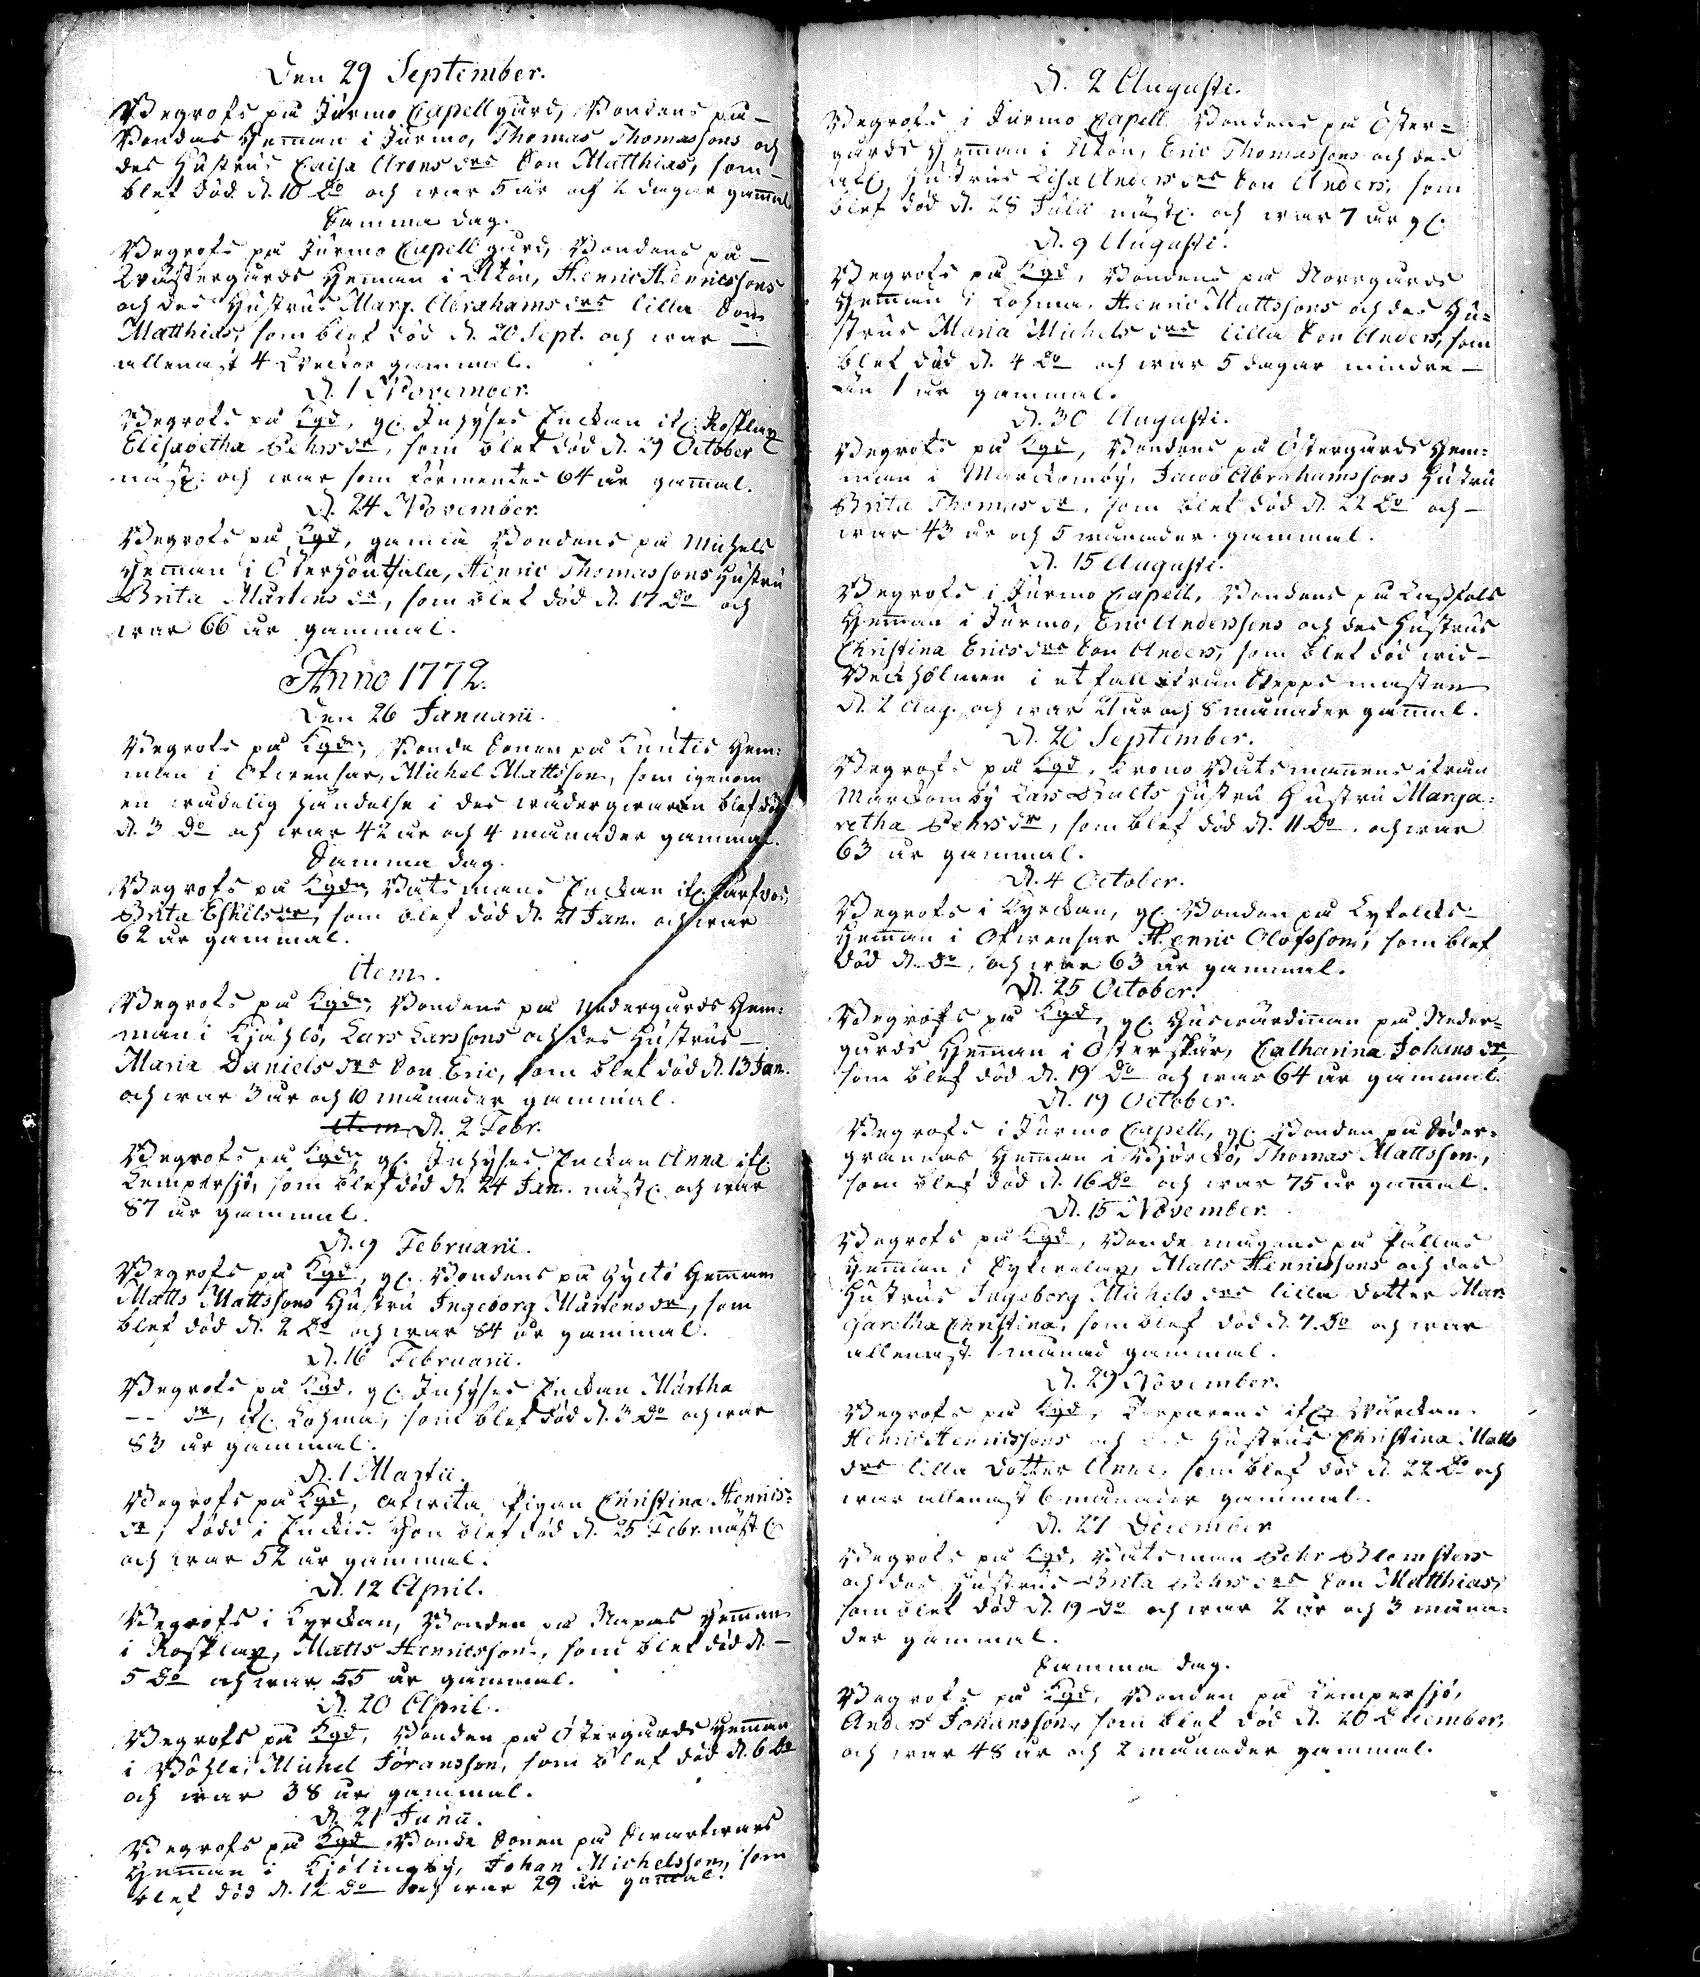 Den 29 September.
Begrofs på Jurmo Capellgård, Bondens på
Bondas Hemman i Jurmo, Thomas Thomassons och
des Hustrus Caisa Arons drs Son Matthias, som
blef död d. 10 do och war 5 år och 2 dagar gammal
Samma dag.
Begrofs på Jurmo Capellgård, Bondens på
Wästergårds Hemman i Åkön, Henric Henricssons
och des Hustrus Marg. Abrahams drs lilla Son
Matthias, som blef död d. 20 Sept. och war
allenast 4 Weckor gammal.
d. 1 November.
Begrofs på Kgd, gl. Inhyses Enckan ifr. Rosklax
Elisabetha Pehrs dr, som blef död d. 29 October
nästl. och war som förmentes 64 år gammal.
d. 24 November.
Begrofs på Kgd, gamla Bondens på Michels
Hemman i Österhoutsala, Henric Thomassons Hustru
Brita Mårtens dr, som blef död d. 17 do och
war 66 år gammal.
Anno 1772.
Den 26 Januarii.
Begrofs på Kgdn, Bonde Sonen på Kuntis Hem-
man i Åfwensar, Michel Mattsson, som igenom
en wådelig händelse i des wädergwarn blef död
d. 3 do och war 42 år och 4 månader gammal.
Samma dag.
Begrofs på Kgdn, Båtsmans Enckan
Brita Eskils dr, som blef död d. 21 Jan. och war
62 år gammal.
item.
Begrofs på Kgdn, Bondens på Nedergårds Hem-
man i Kjählö, Lars Larssons och des Hustrus
Maria Daniels drs Son Eric, som blef död d. 13 Jan.
och war 3 år och 10 månader gammal.
d. 2 Febr.
Begrofs på Kgdn, gl. Inhyses Enckan Anna ifr.
Lempersjö, som blef död d. 24 Jan. nästl. och war
87 år gammal.
d. 9 Februarii.
Begrofs på Kgd, gl. Bondens på Hyttö Hemman
Matts Mattssons Hustru Ingeborg Mårtens dr, som
blef död d. 2 do och war 84 år gammal.
d. 16 Februarii.
Begrofs på Kgd, gl. Inhyses Enckan Märtha
-- dr, ifr. Lohma, som blef död d. 3 do och war
83 år gammal.
d. 1 Martii.
Begrofs på Kgd, ofwita Pigan Christina Henrics-
dr, född i Enckis. Hon blef död d. 25 Febr. nästl.
och war 52 år gammal.
d. 12 April.
Begrofs i Kyrckan, Bonden på Napas Hemman
i Rosklax, Matts Henricsson, som blef död d.
5 do och war 55 år gammal.
d. 20 April.
Begrofs på Kgd, Bonden på Östergårds Hemman
i Böhle, Michel Göransson, som blef död d. 6 do
och war 38 år gammal.
d. 21 Junii.
Begrofs på Kgd Bonde Sonen på Swartwars
Hemman i Kjölingby, Johan Michelsson, som
blef död d. 12 do och war 29 år gammal.
d. 2 Augusti.
Begrofs i Jurmo Capell Bondens på Öster-
gårds Hemman i Åkön, Eric Thomassons och des
afl. Hustrus Lisa Anders drs Son Anders, som
blef död d. 28 Julii nästl. och war 7 år gl.
d. 9 Augusti.
Begrofs på Kgd, Bondens på Norrgårds
Hemman i Lohma, Henric Mattssons och des Hu-
strus Maria Michels drs lilla Son Anders, som
blef död d. 4 do och war 5 dagar mindre
än 1 år gammal.
d. 30 Augusti.
Begrofs på Kgd, Bondens på Östergårds Hem-
man i Marckomby, Jacob Abrahamssons Hustru
Brita Thomas dr, som blef död d. 22 do och
war 43 år och 5 månader gammal.
d. 15 Augusti.
Begrofs i Jurmo Capell, Bondens på Lassfols
Hemman i Jurmo, Eric Anderssons och des Hustrus
Christina Erics drs Son Anders, som blef död wid
Beckholmen i et fall ifrån Skepps masten
d. 2 Aug. och war 21 år och 8 månader gammal.
d. 20 September.
Begrofs på Kgd, Crono Båtsmannens ifrån
Marckomby Lars Hustru Hustru Marga-
retha Pehrs dr, som blef död d. 11 do, och war
63 år gammal.
d. 4 October.
Begrofs i Kyrckan, gl. Bonden på
Hemman i Åfwensar Henric Olofsson, som blef
död d. do, och war 63 år gammal.
d. 25 October.
Begrofs på Kgd, gl. Huswärdinnan på Neder-
gårds Hemman i Österskär, Catharina Johans dr,
som blef död d. 19 do och war 64 år gammal.
d. 19 October.
Begrofs i Jurmo Capell, gl. Bonden på Söder-
grannas Hemman i Björckö, Thomas Mattsson,
som blef död d. 16 do och war 75 år gammal.
d. 15 November.
Begrofs på Kgd, Bonde mågens på Pållas
Hemman i Matts Henricssons och des
Hustrus Ingeborg Michels drs lilla dotter Mar-
garetha Christina, som blef död d. 7. do och war
allenast 1 månad gammal.
d. 29 November.
Begrofs på Kgd, Torparens ifr.
Henric Henricssons och des Hustrus Christina Matts
drs lilla dotter Anna, som blef död d. 22 do och
war allenast 6 månader gammal.
d. 27 December
Begrofs på Kgd, Båtsman Pehr Blomsters
och des Hustrus Brita Pehrs drs Son Matthias,
som blef död d. 19 do och war 2 år och 3 måna-
der gammal.
Samma dag.
Begrofs på Kgd, Bonden på Lempersjö,
Anders Johansson, som blef död d. 20 December,
och war 48 år och 2 månader gammal.